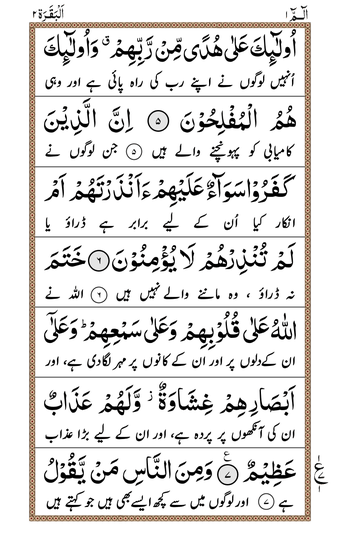 الٓمّٓ ۱ اَلْبَقَرَة ۲
اُولٰٓئِكَ عَلٰى هُدًى مِّنْ رَّبِّهِمْ ۗ وَاُولٰٓئِكَ
اُنہیں لوگوں نے اپنے رب کی راہ پائی ہے اور وہی
هُمُ الْمُفْلِحُوْنَ ۵ اِنَّ الَّذِيْنَ
کامیابی کو پہونچنے والے ہیں ۵ جن لوگوں نے
كَفَرُوْا سَوَآءٌ عَلَيْهِمْ ءَاَنْذَرْتَهُمْ اَمْ
انکار کیا اُن کے لیے برابر ہے ڈراؤ یا
لَمْ تُنْذِرْهُمْ لَا يُؤْمِنُوْنَ ۶ خَتَمَ
نہ ڈراؤ ، وہ ماننے والے نہیں ہیں ۶ اللہ نے
اللّٰهُ عَلٰى قُلُوْبِهِمْ وَعَلٰى سَمْعِهِمْ ۖ وَعَلٰٓى
ان کے دلوں پر اور ان کے کانوں پر مہر لگا دی ہے، اور
اَبْصَارِهِمْ غِشَاوَةٌ ۫ وَّلَهُمْ عَذَابٌ
ان کی آنکھوں پر پردہ ہے، اور ان کے لیے بڑا عذاب
عَظِيْمٌ ۷ وَمِنَ النَّاسِ مَنْ يَّقُوْلُ
ہے ۷ اور لوگوں میں سے کچھ ایسے بھی ہیں جو کہتے ہیں